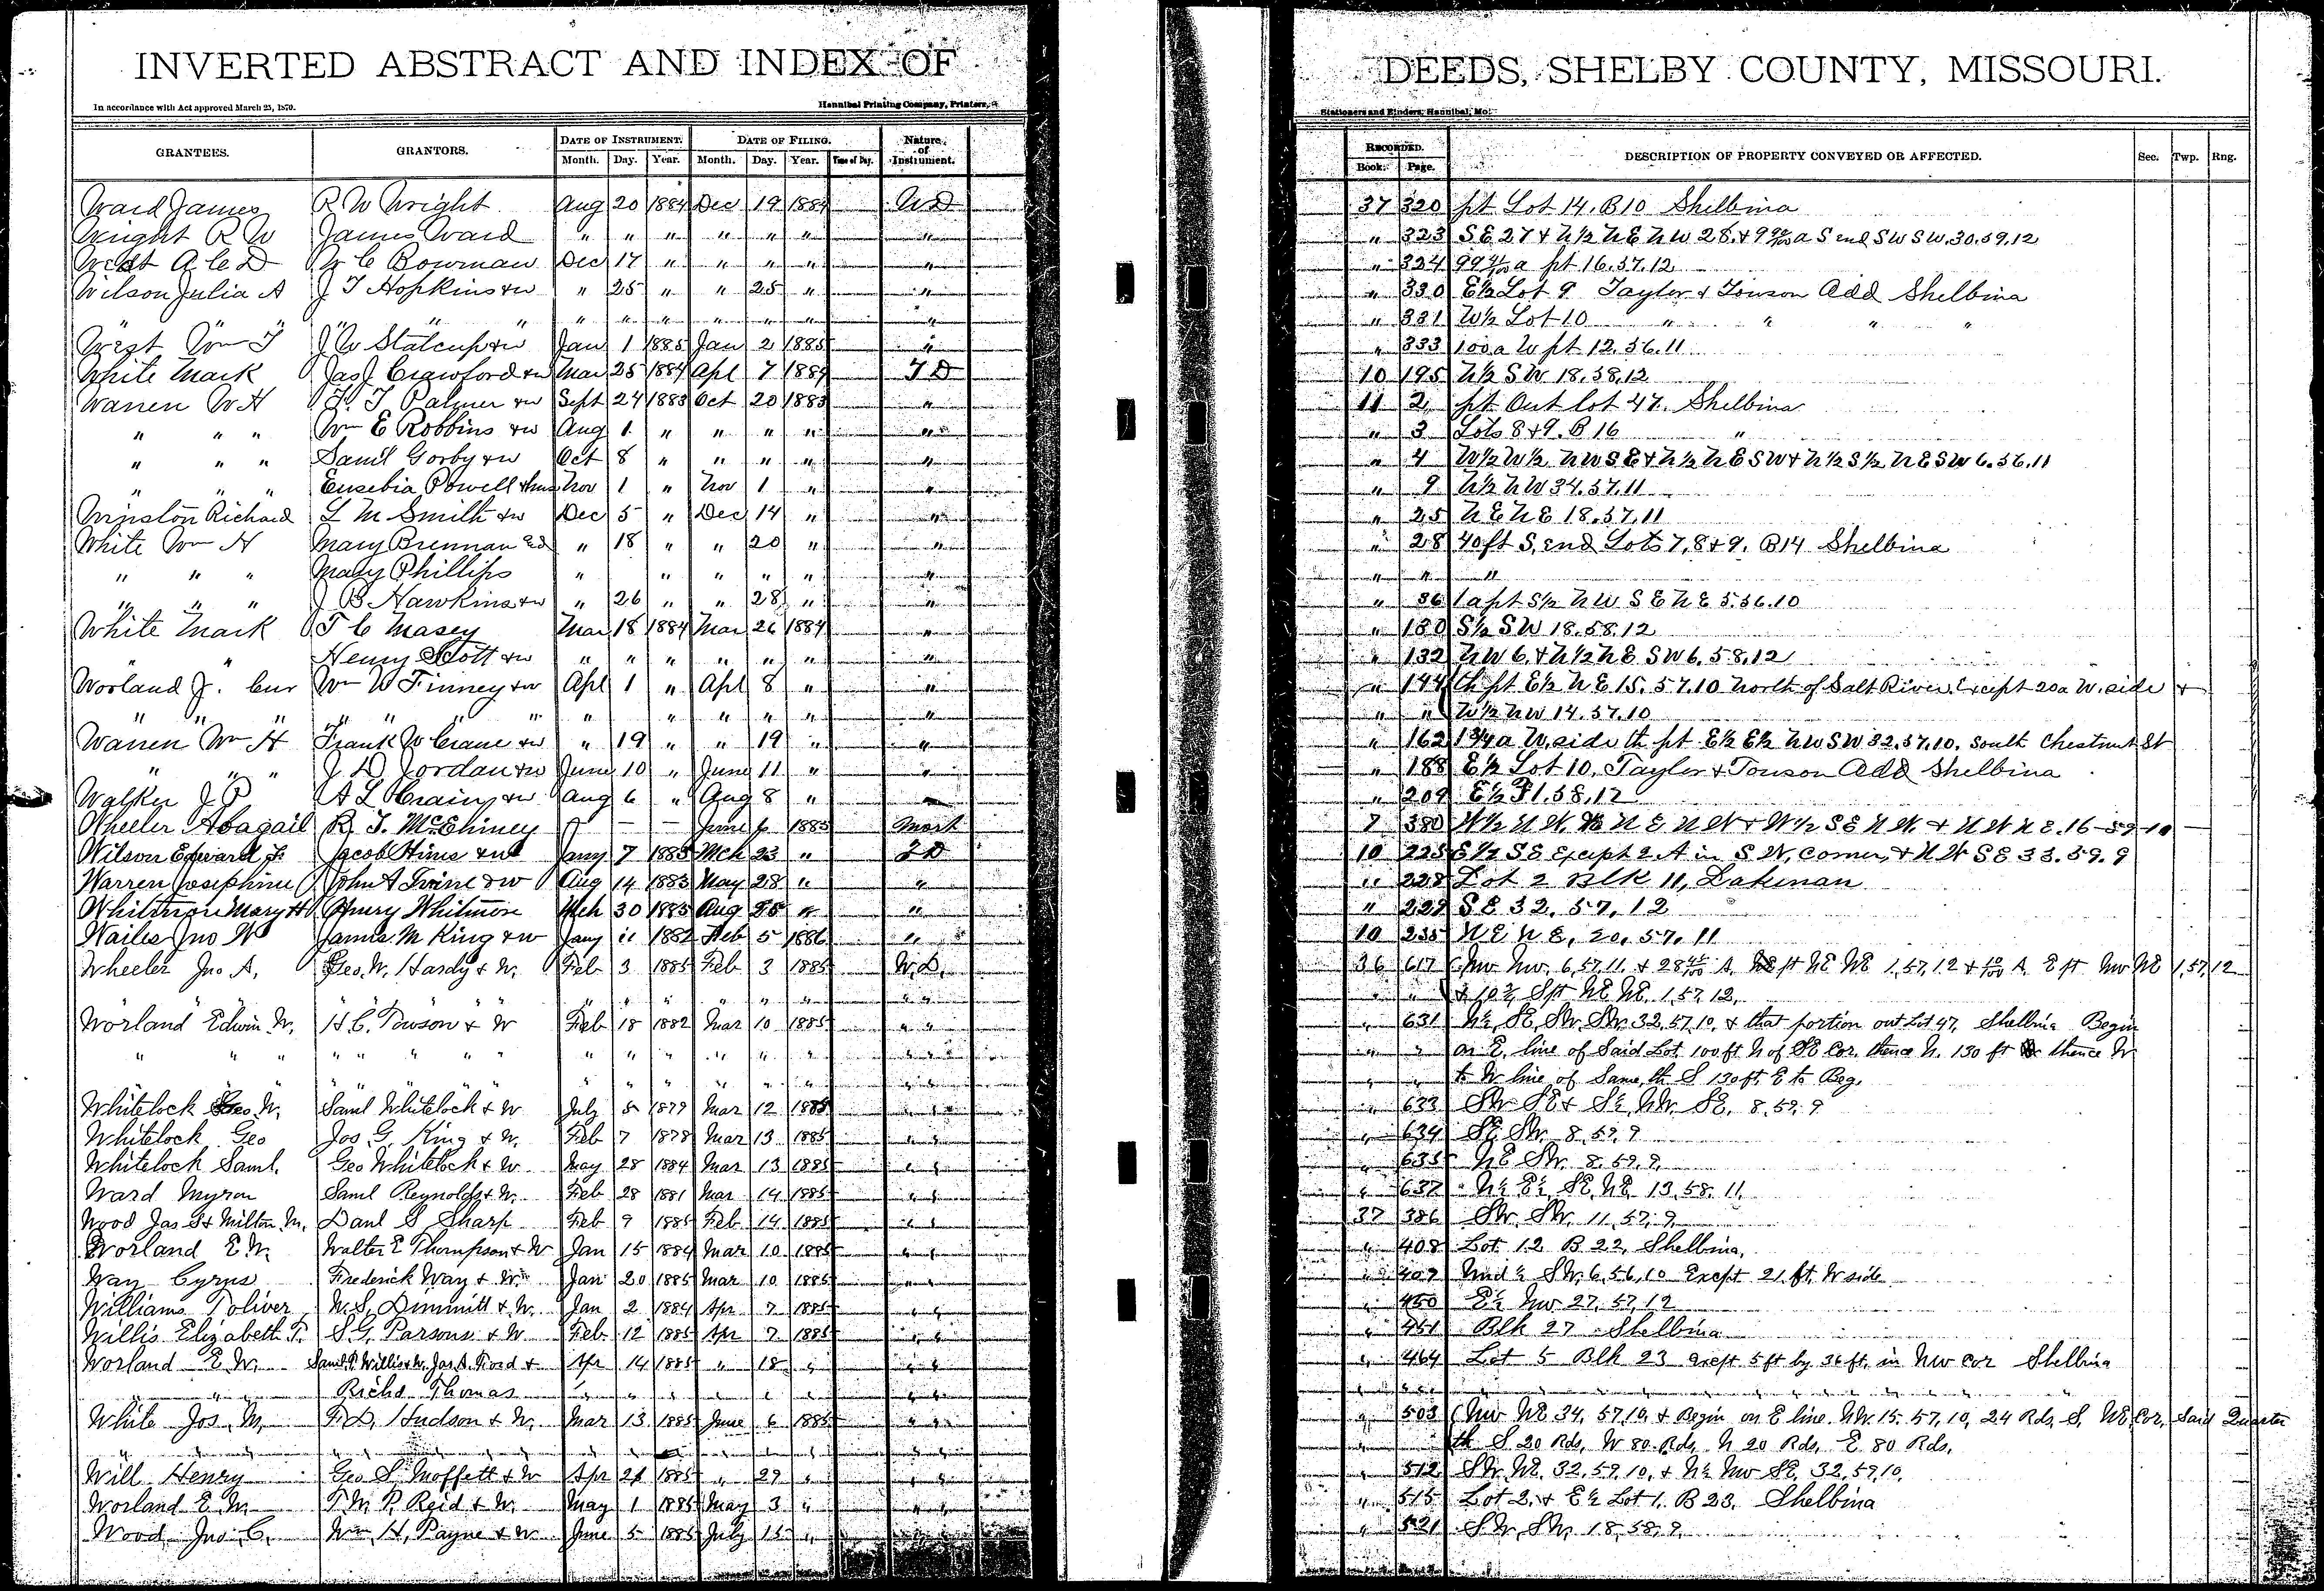 INVERTED ABSTRACT AND INDEX OF DEEDS, SHELBY COUNTY, MISSOURI.
In accordance with Act approved March 25, 1870. Hannibal Printing Company, Printers, Stationers and Binders, Hannibal, Mo.
GRANTEES. GRANTORS. DATE OF INSTRUMENT. DATE OF FILING. Nature of Instrument. RECORDED. DESCRIPTION OF PROPERTY CONVEYED OR AFFECTED. Sec. Twp. Rng.
Month. Day. Year. Month. Day. Year. Time of Day. Book. Page.
Ward James R W Wright Aug 20 1884 Dec 19 1884 W D 37 320 pt Lot 14, B10 Shelbina
Wright R W James Ward " " " " " " " " 323 SE 27 & N½ NE NW 28, & 9 a S end SW SW, 30.59.12
West A C D W C Bowman Dec 17 " " " " " " 324 99 a pt 16.57.12
Wilson Julia A J T Hopkins & w " 25 " " 25 " " " 330 E½ Lot 9 Taylor & Towson Add Shelbina
" " " " " " " " " " " " 331 W½ Lot 10 " " " "
West Wm T J W Statcup & w Jan 1 1885 Jan 2 1885 " " 333 100 a W pt 12.56.11
White Mark Jas J Crawford & w Mar 25 1884 Apl 7 1884 T D 10 195 N½ SW 18.58.12
Warren W H T. T Palmer & w Sept 24 1883 Oct 20 1883 " 11 2 pt Out lot 47. Shelbina
" " " Wm E Robbins & w Aug 1 " " " " " " 3 Lots 8 & 9. B 16 "
" " " Saml Gorby & w Oct 8 " " " " " " 4 W½ W½ NW SE & N½ NE SW & N½ S½ NE SW 6.56.11
" " " Eusebia Powell & hus Nov 1 " Nov 1 " " " 9 N½ NW 34.57.11
Winston Richard L M Smith & w Dec 5 " Dec 14 " " " 25 NE NE 18.57.11
White Wm H Mary Brennan " 18 " " 20 " " " 28 40 ft S. end Lots 7, 8 & 9. B14 Shelbina
" " " Mary Phillips " " " " " " " " "
" " " J B Hawkins & w " 26 " " 28 " " " 36 1 a pt S½ NW SE NE 5.56.10
White Mark T C Masey Mar 18 1884 Mar 26 1884 " " 130 S½ SW 18.58.12
" " Henry Scott & w " " " " " " " " 132 NW 6. & N½ NE SW 6.58.12
Worland J. Cur Wm W Finney & w Apl 1 " Apl 8 " " " 144 th pt E½ NE 15.57.10 North of Salt River. Except 20a W. side &
" " " " " " " " " " " " " " " " W½ NW 14.57.10
Warren Wm H Frank W Crane & w " 19 " " 19 " " " 162 1¾ a W. side th pt E½ E½ NW SW 32.57.10. South Chestnut St
" " " J D Jordan & w June 10 " June 11 " " " 188 E½ Lot 10, Taylor & Towson Add Shelbina
Walker J P A L Crain & w Aug 6 " Aug 8 " " " 209 E½ F1.58.12
Wheeler Abagail R. T. McEhiney — — June 6 1885 Mort 7 380 W½ NW NE NW & W½ SE NW. & NW NE. 16-59-10
Wilson Edward Jacob Hines & w Jany 7 1885 Mch 23 " T D 10 225 E½ SE Except 2 A in SW, corner, & NW SE 33.59.9
Warren Josephine John A Irvine & w Aug 14 1883 May 28 " " " 228 Lot 2 Blk 11, Lakenan
Whitmore Mary H Henry Whitmore Mch 30 1885 Aug " " " 229 SE 32, 57, 12
Wailes Jno W James M King & w Jany 11 1882 Feb 5 1886 " 10 235 NE NE, 20, 57, 11
Wheeler Jno A. Geo. W. Hardy & W. Feb 3 1885 Feb 3 1885 W.D. 36 617 NW NW. 6,57,11. & 28 A, pt NE NE 1,57,12 & A E pt NW NE 1,57,12
" " " " " " " " " & 10 S pt NE NE. 1,57,12,
Worland Edwin W. H. C. Towson & W Feb 18 1882 Mar 10 1885 " " " 631 N½ SE, SW. SW. 32,57,10, & that portion out Lot 47, Shelbina Begin
" " " " " " " " " " " " " " " " " " on E. line of Said Lot 100 ft N of SE Cor. thence N. 130 ft thence W
" " " " " " " " " " to W line of Same, th S 130 ft, E to Beg.
Whitelock Geo W. Saml Whitelock & W July 5 1879 Mar 12 1885 " " " 633 SW SE & S½ NW. SE, 8.59.9
Whitelock Geo Jos G. King & W. Feb 7 1878 Mar 13 1885 " " " 634 SE SW. 8.59.9
Whitelock Saml. Geo Whitelock & W May 28 1884 Mar 13 1885 " " " 635 NE SW. 8.59.9
Ward Myron Saml Reynolds & W. Feb 28 1881 Mar 14 1885 " " " 637 N½ E½ SE, NE. 13,58,11
Wood Jas S & Milton M, Danl S Sharp Feb 9 1885 Feb 14 1885 " " 37 386 SW. SW. 11,57,9
Worland E W. Walter E Thompson & W Jan 15 1884 Mar 10 1885 " " " 408 Lot 12 B 22, Shelbina,
Way Cyrus Frederick Way & W. Jan 20 1885 Mar 10 1885 " " " 409 Und ½ SW. 6,56,10 Except 21 ft. W side
Williams Toliver W. S. Dimmitt & W. Jan 2 1884 Apr 7 1885 " " " 450 E½ NW 27,57,12
Willis Elizabeth T. S. G. Parsons & W Feb 12 1885 Apr 7 1885 " " " 451 Blk 27 Shelbina
Worland E W. Saml P Willis & W, Jas. A. Ford & Apr 14 1885 " 18 " " " " 464 Lot 5 Blk 23 except 5 ft by 36 ft, in NW cor Shelbina
" " Richd Thomas
White Jos. M, F. D. Hudson & W. Mar 13 1885 June 6 1885 " " " 503 NW NE 34,57,10, & Begin on E line NW. 15,57,10, 24 Rds, S. NE, Cor. Said Quarter
" " " " th S 20 Rds, W 80 Rds, N 20 Rds, E 80 Rds.
Will Henry Geo S. Moffett & W Apr 21 1885 " 29 " " " " 512 SW. NE. 32,59,10, & N½ NW SE. 32,59,10.
Worland E. M. T. W. P. Reid & W. May 1 1885 May 3 " " " " 515 Lot 2, & E½ Lot 1, B 23, Shelbina
Wood Jno. C. Wm, H. Payne & W June 5 1885 July 15 " " " " 521 SW, SW, 18,58,9